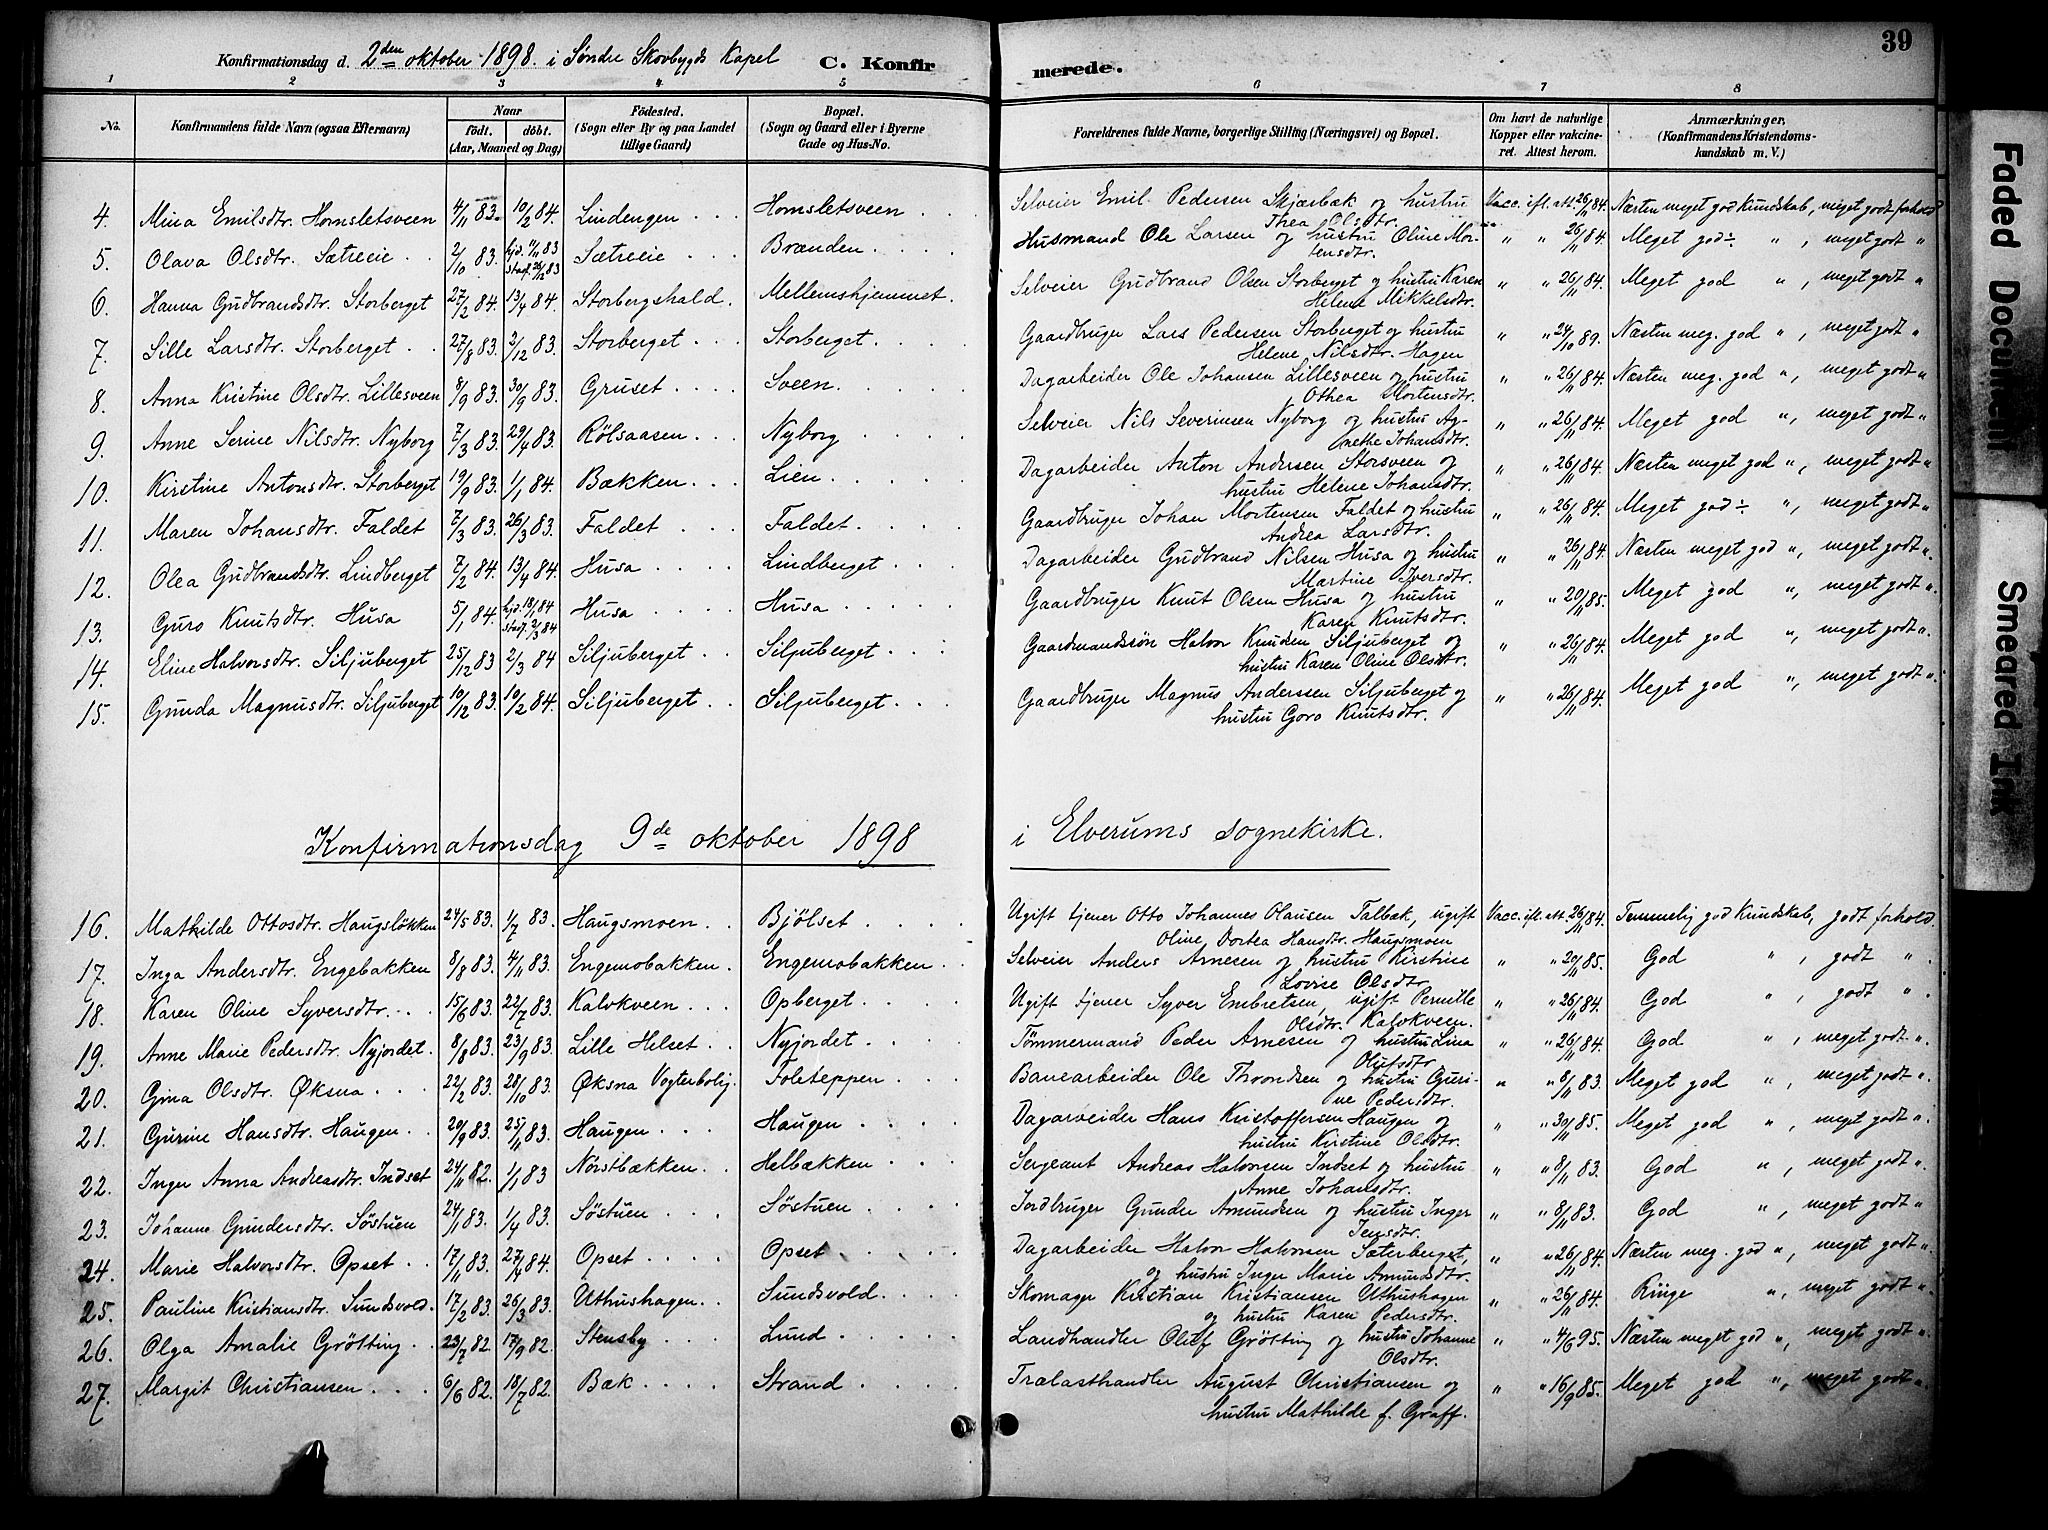 39
Konfirmationsdag d. 2den oktober 1898. i Søndre Skovbygds Kapel C. Konfirmerede.
1 2 3 4 5 6 7 8
No. Konfirmandens fulde Navn (ogsaa Efternavn) Naar födt. döbt. (Aar, Maaned og Dag) Födested. (Sogn eller By og paa Landet tillige Gaard) Bopæl. (Sogn og Gaard eller i Byerne Gade og Hus-No. Forældrenes fulde Navne, borgerlige Stilling (Næringsvei) og Bopæl. Om havt de naturlige Kopper eller vakcineret. Attest herom. Anmærkninger. (Konfirmandens Kristendomskundskab m. V.)
4. Mina Emilsdtr. Homsletsveen 4/11 83. 10/2 84. Lindengen Homsletsveen Selveier Emil Pedersen Skjærbæk og hustru Thea Olsdtr. Vacc. ifl. att. 26/11 84. Næsten meget god Kundskab, meget godt forhold
5. Olava Olsdtr. Sætreeie 2/10 83. hjd. 11/11 83 stadf. 26/12 83 Sætreeie Brænden Husmand Ole Larsen og hustru Oline Mortensdtr. " " 26/11 84. Meget god÷ ", meget godt "
6. Hanna Gudbrandsdtr. Storberget 27/2 84. 13/4 84. Storbergshald. Mellemshjemmet. Selveier Gudbrand Olsen Storberget og hustru Karen Helene Mikkelsdtr. " " 26/11 84. Meget god ", meget godt "
7. Sille Larsdtr. Storberget 27/8 83. 2/12 83. Storberget Storberget Gaardbruger Lars Pedersen Storberget og hustru Helene Nilsdtr. Hagen " " 24/10 89. Næsten meg. god ", meget godt "
8. Anna Kristine Olsdtr. Lillesveen 8/9 83. 30/9 83. Gruset Sveen. Dagarbeider Ole Johansen Lillesveen og hustru Othea Mortensdtr. " " 26/11 84. Næsten meg. god ", meget godt "
9. Anne Serine Nilsdtr. Nyborg 7/3 83. 29/4 83. Rölsaasen Nyborg Selveier Nils Severinsen Nyborg og hustru Agnethe Johansdtr. " " 26/11 84. Meget god ", meget godt "
10. Kirstine Antonsdtr. Storberget 19/9 83. 1/1 84. Bækken Lien Dagarbeider Anton Andersen Storsveen og hustru Helene Johansdtr. " " 26/11 84. Næsten meget god ", meget godt "
11. Maren Johansdtr. Faldet 7/3 83. 26/3 83. Faldet Faldet Gaardbruger Johan Mortensen Faldet og hustru Andrea Larsdtr. " " 26/11 84. Meget god÷ ", meget godt "
12. Olea Gudbrandsdtr. Lindberget 7/2 84. 13/4 84. Husa Lindberget Dagarbeider Gudbrand Nilsen Husa og hustru Martine Iversdtr. " " 26/11 84. Næsten meget god ", meget godt "
13. Guro Knutsdtr. Husa 5/1 84. hjd. 18/1 84 stadf. 2/3 84 Husa Husa Gaardbruger Knut Olsen Husa og hustru Karen Knutsdtr. " " 20/11 85. Meget god ", meget godt "
14. Eline Halvorsdtr. Siljuberget 25/12 83 2/3 84 Siljuberget Siljuberget Gaardmandssön Halvor Knudsen Siljuberget og hustru Karen Oline Olsdtr. " " 26/11 84. Meget god ", meget godt "
15. Gunda Magnusdtr. Siljuberget 10/12 83. 10/2 84. Siljuberget Siljuberget Gaardbruger Magnus Anderssen Siljuberget og hustru Goro Knutsdtr. " " 26/11 84. Meget god ", meget godt "
Konfirmationsdag 9de oktober 1898 i Elverums sognekirke.
16. Mathilde Ottosdtr. Haugsløkken 24/5 83. 1/7 83. Haugsmoen Bjölset Ugift tjener Otto Johannes Olausen Talbæk, ugift Oline Dortea Hansdtr. Haugsmoen Vacc. ifl. att. 26/11 84. Temmelig god Kundskab, godt forhold.
17. Inga Andersdtr. Engebakken 8/8 83. 4/11 83. Engemobakken. Engemobakken Selveier Anders Arnesen og hustru Kirstine Lovise Olsdtr. " " 20/11 85. God ", godt "
18. Karen Oline Syversdtr. 15/6 83. 22/7 83. Kalvkveen Opberget Ugift tjener Syver Embretsen, ugift Pernille Olsdtr. Kalvkveen. " " 26/11 84. God ", godt "
19. Anne Marie Pedersdtr. Nyjordet. 8/8 83. 23/9 83. Lille Helset Nyjordet Tömmermand Peder Arnesen og hustru Lina Olufsdtr. " " 26/11 84. God ", meget godt "
20. Gina Olsdtr. Øksna 22/2 83. 28/10 83. Øksna Vogterbolig. Foleteppen Banearbeider Ole Throndsen og hustru Gurine Pedersdtr. " " 8/11 83. Meget god ", meget godt "
21. Gurine Hansdtr. Haugen 20/9 83. 25/11 83. Haugen Haugen Dagarbeider Hans Kristoffersen Haugen og hustru Kirstine Olsdtr. " " 30/11 85. Meget god ", meget godt "
22. Inger Anna Andreasdtr. Indset 24/11 82. 1/1 83 Nörstbækken Helbækken Sergeant Andreas Halvorsen Indset og hustru Anne Johansdtr. " " 8/11 83. God ", meget godt "
23. Johanne Gundersdtr. Söstuen 24/1 83. 1/4 83. Söstuen Söstuen Jordbruger Gunder Amundsen og hustru Inger Jensdtr. " " 8/11 83. God ", meget godt "
24. Marie Halvorsdtr. Opset 17/11 83. 27/4 84. Opset Opset Dagarbeider Halvor Halvorsen Sæterberget, og hustru Inger Marie Amundsdtr. " " 26/11 84. Næsten meg. god ", meget godt "
25. Pauline Kristiansdtr. Sundsvold. 17/2 83. 26/3 83. Uthushagen Sundsvold Skomager Kristian Kristiansen Uthushagen og hustru Karen Pedersdtr. " " 26/11 84. Ringe ", meget godt "
26. Olga Amalie Gröttting 23/7 82. 17/9 82. Stensby Lund Landhandler Oluf Grötting og hustru Johanne Olsdtr. " " 4/6 95. Næsten meget god ", meget godt "
27. Margit Christiansen 6/6 82. 18/7 82. Bæk Strand Trælasthandler August Christiansen og hustru Mathilde f. Graff. " " 16/9 85. Meget god ", meget godt "
Faded Document
Smeared Ink